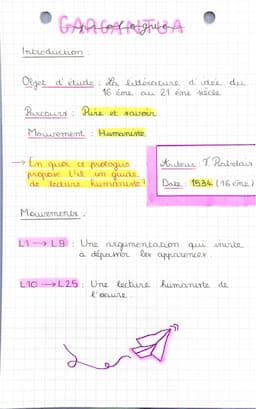 GARGANTUA
prologue
Introduction :
Objet d'étude : la littérature d'idée du
16 ème au 21 ème siècle
Parcours : Rire et savoir
Mouvement : Humaniste
→ En quoi ce prologue
propose t'il un guide
de lecture humaniste ?
Auteur : F. Rabelais
Date : 1534 (16 ème)
Mouvements :
L1 → L9 : Une argumentation qui invite
à dépasser les apparences.
L10 → L25 : Une lecture humaniste de
l'oeuvre.